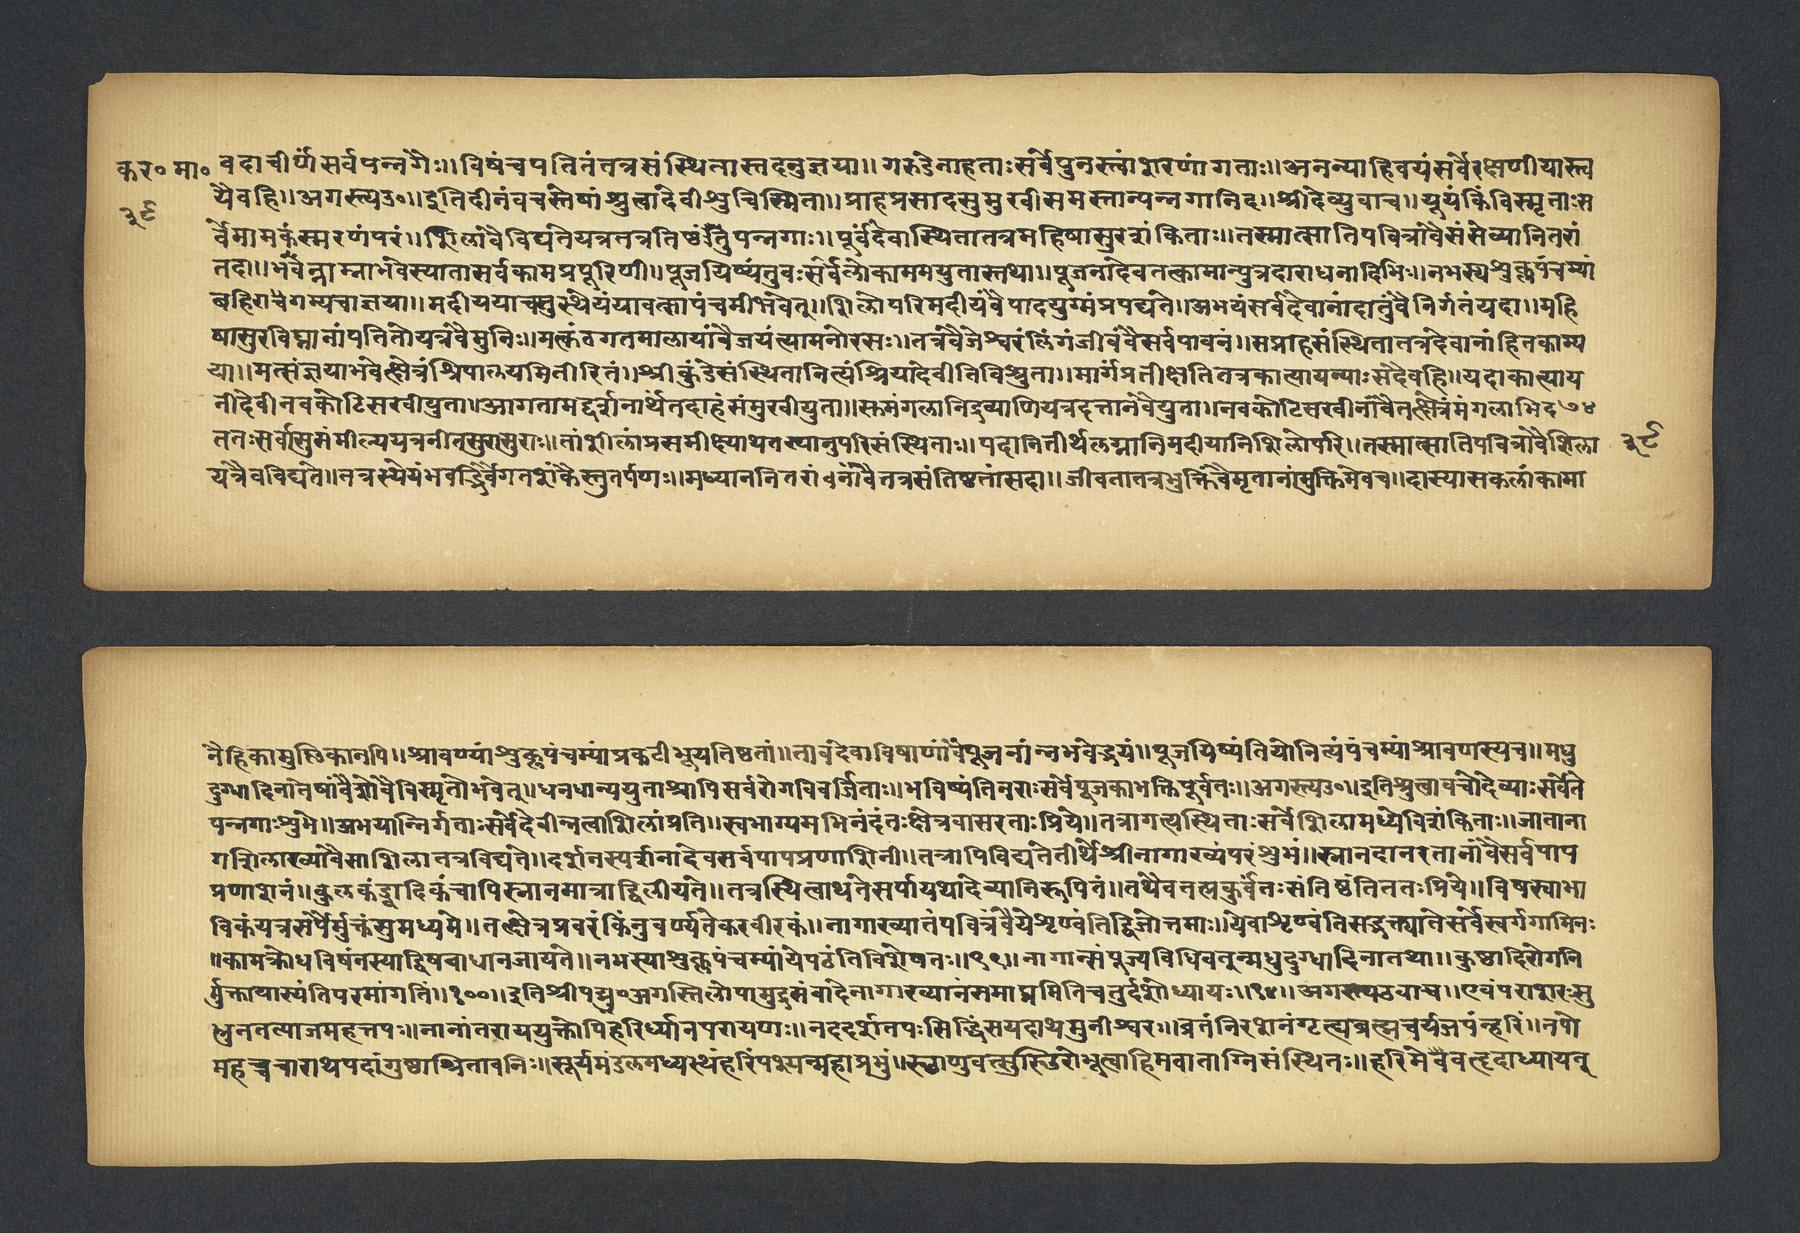 कर॰ मा॰ वदाचीर्णं सर्वपन्नगैः॥ विषंचपतितंतत्रसंस्थितास्तदनुज्ञया॥ गरुडेनाहताःसर्वेपुनस्त्वांशरणंगताः॥ अनन्याहिवयंसर्वेरक्षणीयास्त्व
३९
यैवहि॥ अगस्त्यउ॰॥ इतिदीनंवचस्तेषांश्रुत्वादेवीशुचिस्मिता॥ प्राहप्रसादसुमुखीसमस्तान्पन्नगानिद॥ श्रीदेव्युवाच॥ यूयंकिंविस्मृताःस
र्वेमामकंस्मरणंपरं॥ शिलांवैविद्यतेयत्रतत्रतिष्ठंतुपन्नगाः॥ पूर्वंदेवास्थितातत्रमहिषासुरशंकिताः॥ तस्मात्सातिपवित्रांवैसंसेव्यानितरां
तदा॥ भवेन्नाम्नाभवेस्यातासर्वकामप्रपूरिणी॥ पूजयिष्यंतुवःसर्वेलोकाममयुतास्तथा॥ पूजनादेवतत्कामान्पुत्रदाराधनादिभिः॥ नभस्यशुक्लपंचम्यां
बहिरावेगम्यचाज्ञया॥ मदीययाचस्तुस्थेयंयावत्सापंचमीभवेत्॥ शिलोपरिमदीयंवैपादयुग्मंप्रपद्यते॥ अभयंसर्वदेवानांदातुंवैनिर्गतंयदा॥ महि
षासुरविघ्नानांपतितोयत्रवैमुनिः॥ मत्कंठगतमालायांवैजयंत्यामनोरसः॥ तत्रंवैजेश्वरंलिंगंजीवंवैसर्वपावनं॥ सप्राहसंस्थितातत्रदेवानांहितकाम्य
या॥ मत्संज्ञयाभवेत्क्षेत्रंश्रिपालयमितीरितं॥ श्रीकुंडेसंस्थितानित्यंश्रियादेवीतिविश्रुता॥ मार्गप्रतीक्षतितत्रकात्यायन्याःसदैवहि॥ यदाकात्याय
नीदेवीनवकोटिसखीयुता॥ आगतामद्दर्शनार्थंतदाहंसंमुखीयुता॥ स्तमंगलानिद्रव्याणियत्रदत्तानवैद्युता॥ नवकोटिसखीनांवैतत्क्षेत्रंमंगलाभिद७४
ततःसर्वासुसंमील्ययत्रनीतसुरासुराः॥ तांशिलांप्रसमीक्ष्याथतस्यानुपरिसंस्थिताः॥ पदानितीर्थलग्नानिमदीयानिशिलोपरि॥ तस्मात्सातिपवित्रावैशिला
३९
यत्रैवविद्यते॥ तत्रस्थेयंभवद्भिर्वैगतशंकैस्तुतर्पणः॥ मध्याननितरांवनांवैतत्रसंतिष्ठतांसदा॥ जीवतातत्रभुक्तिंवैमृतानांमुक्तिमेवच॥ दास्यासकलांकामा
नैहिकामुष्मिकानपि॥ श्रावण्यांशुक्लपंचम्यांप्रकटीभूयतिष्ठतां॥ तावदेवाविषाणांवैपूजनांन्नभवेद्भयं॥ पूजयिष्यंतियोनित्यंपंचम्यांश्रावणस्यच॥ मधु
दुग्धादिनांतेषांवैशेवैविस्मृतोभवेत्॥ धनधान्ययुताश्चापिसर्वरोगविवर्जिताः॥ भविष्यंतिनराःसर्वेपूजकाभक्तिपूर्वतः॥ अगस्त्यउ॰॥ इतिश्रुत्वावचोदेव्याःसर्वेते
पन्नगाःशुभे॥ अभयान्निर्गताःसर्वेदेवींनत्वाशिलांप्रति॥ स्वभाग्यमभिनंदंतःक्षेत्रवासरताःप्रिये॥ तत्रागत्यस्थिताःसर्वेशिलामध्येविशंकिताः॥ जाताना
गशिलाख्यांवैसाशिलातत्रविद्यते॥ दर्शनस्पर्शनादेवसर्वपापप्रणाशिनी॥ तत्रापिविद्यतेतीर्थंश्रीनागाख्यंपरंशुभं॥ स्नानदानरतानांवैसर्वपाप
प्रणाशनं॥ कुलकंड्वादिकंचापिस्नानमात्राद्विलीयते॥ तत्रस्थित्वाथतेसर्पायथादेव्यानिरूपितं॥ तथैवतत्प्रकुर्वंतःसंतिष्ठंतिततःप्रिये॥ विषस्याभा
विकंयत्रसर्पैर्मुक्तंसुमध्यमे॥ तत्क्षेत्रप्रवरंकिंनुवर्ण्यतेकरवीरकं॥ नागाख्यातंपवित्रंवैयेशृण्वंतिद्विजोत्तमाः॥ येवाशृण्वंतिसद्भक्त्यातेसर्वेस्वर्गगामिनः
॥कामक्रोधविषंतस्याद्विषबाधानजायते॥ नभस्याशुक्लपंचम्यांयेपठंतिविशेषतः॥९९॥ नागान्संपूज्यविधिवन्मधुदुग्धादिनातथा॥ कुष्ठादिरोगनि
र्मुक्तायास्यंतिपरमांगतिं॥१००॥ इतिश्रीपद्मपु॰अगस्तिलोपामुद्रासंवादेनागाख्यानंसमाप्तमितिचतुर्दशोध्यायः॥१४॥ अगस्त्यउवाच॥ एवंपराशरःसु
त्धुनतत्याजमहत्तपः॥ नानांतराययुक्तोपिहरिर्ध्यानपरायणः॥ नददर्शतपःसिद्धिंसयदाथमुनीश्वरः॥ व्रतंनिरशनंगृत्यब्रह्मचर्यंजपंन्हरिं॥ तपो
महच्चचाराथपदांगुष्ठाश्रितावनिः॥ सूर्यमंडलमध्यस्थंहरिंपश्यन्महाप्रभुं॥ स्थाणुवत्सुस्थिरोभूत्वाहिमवाताग्निसंस्थितः॥ हरिमेवैवत्हृदाध्यायन्